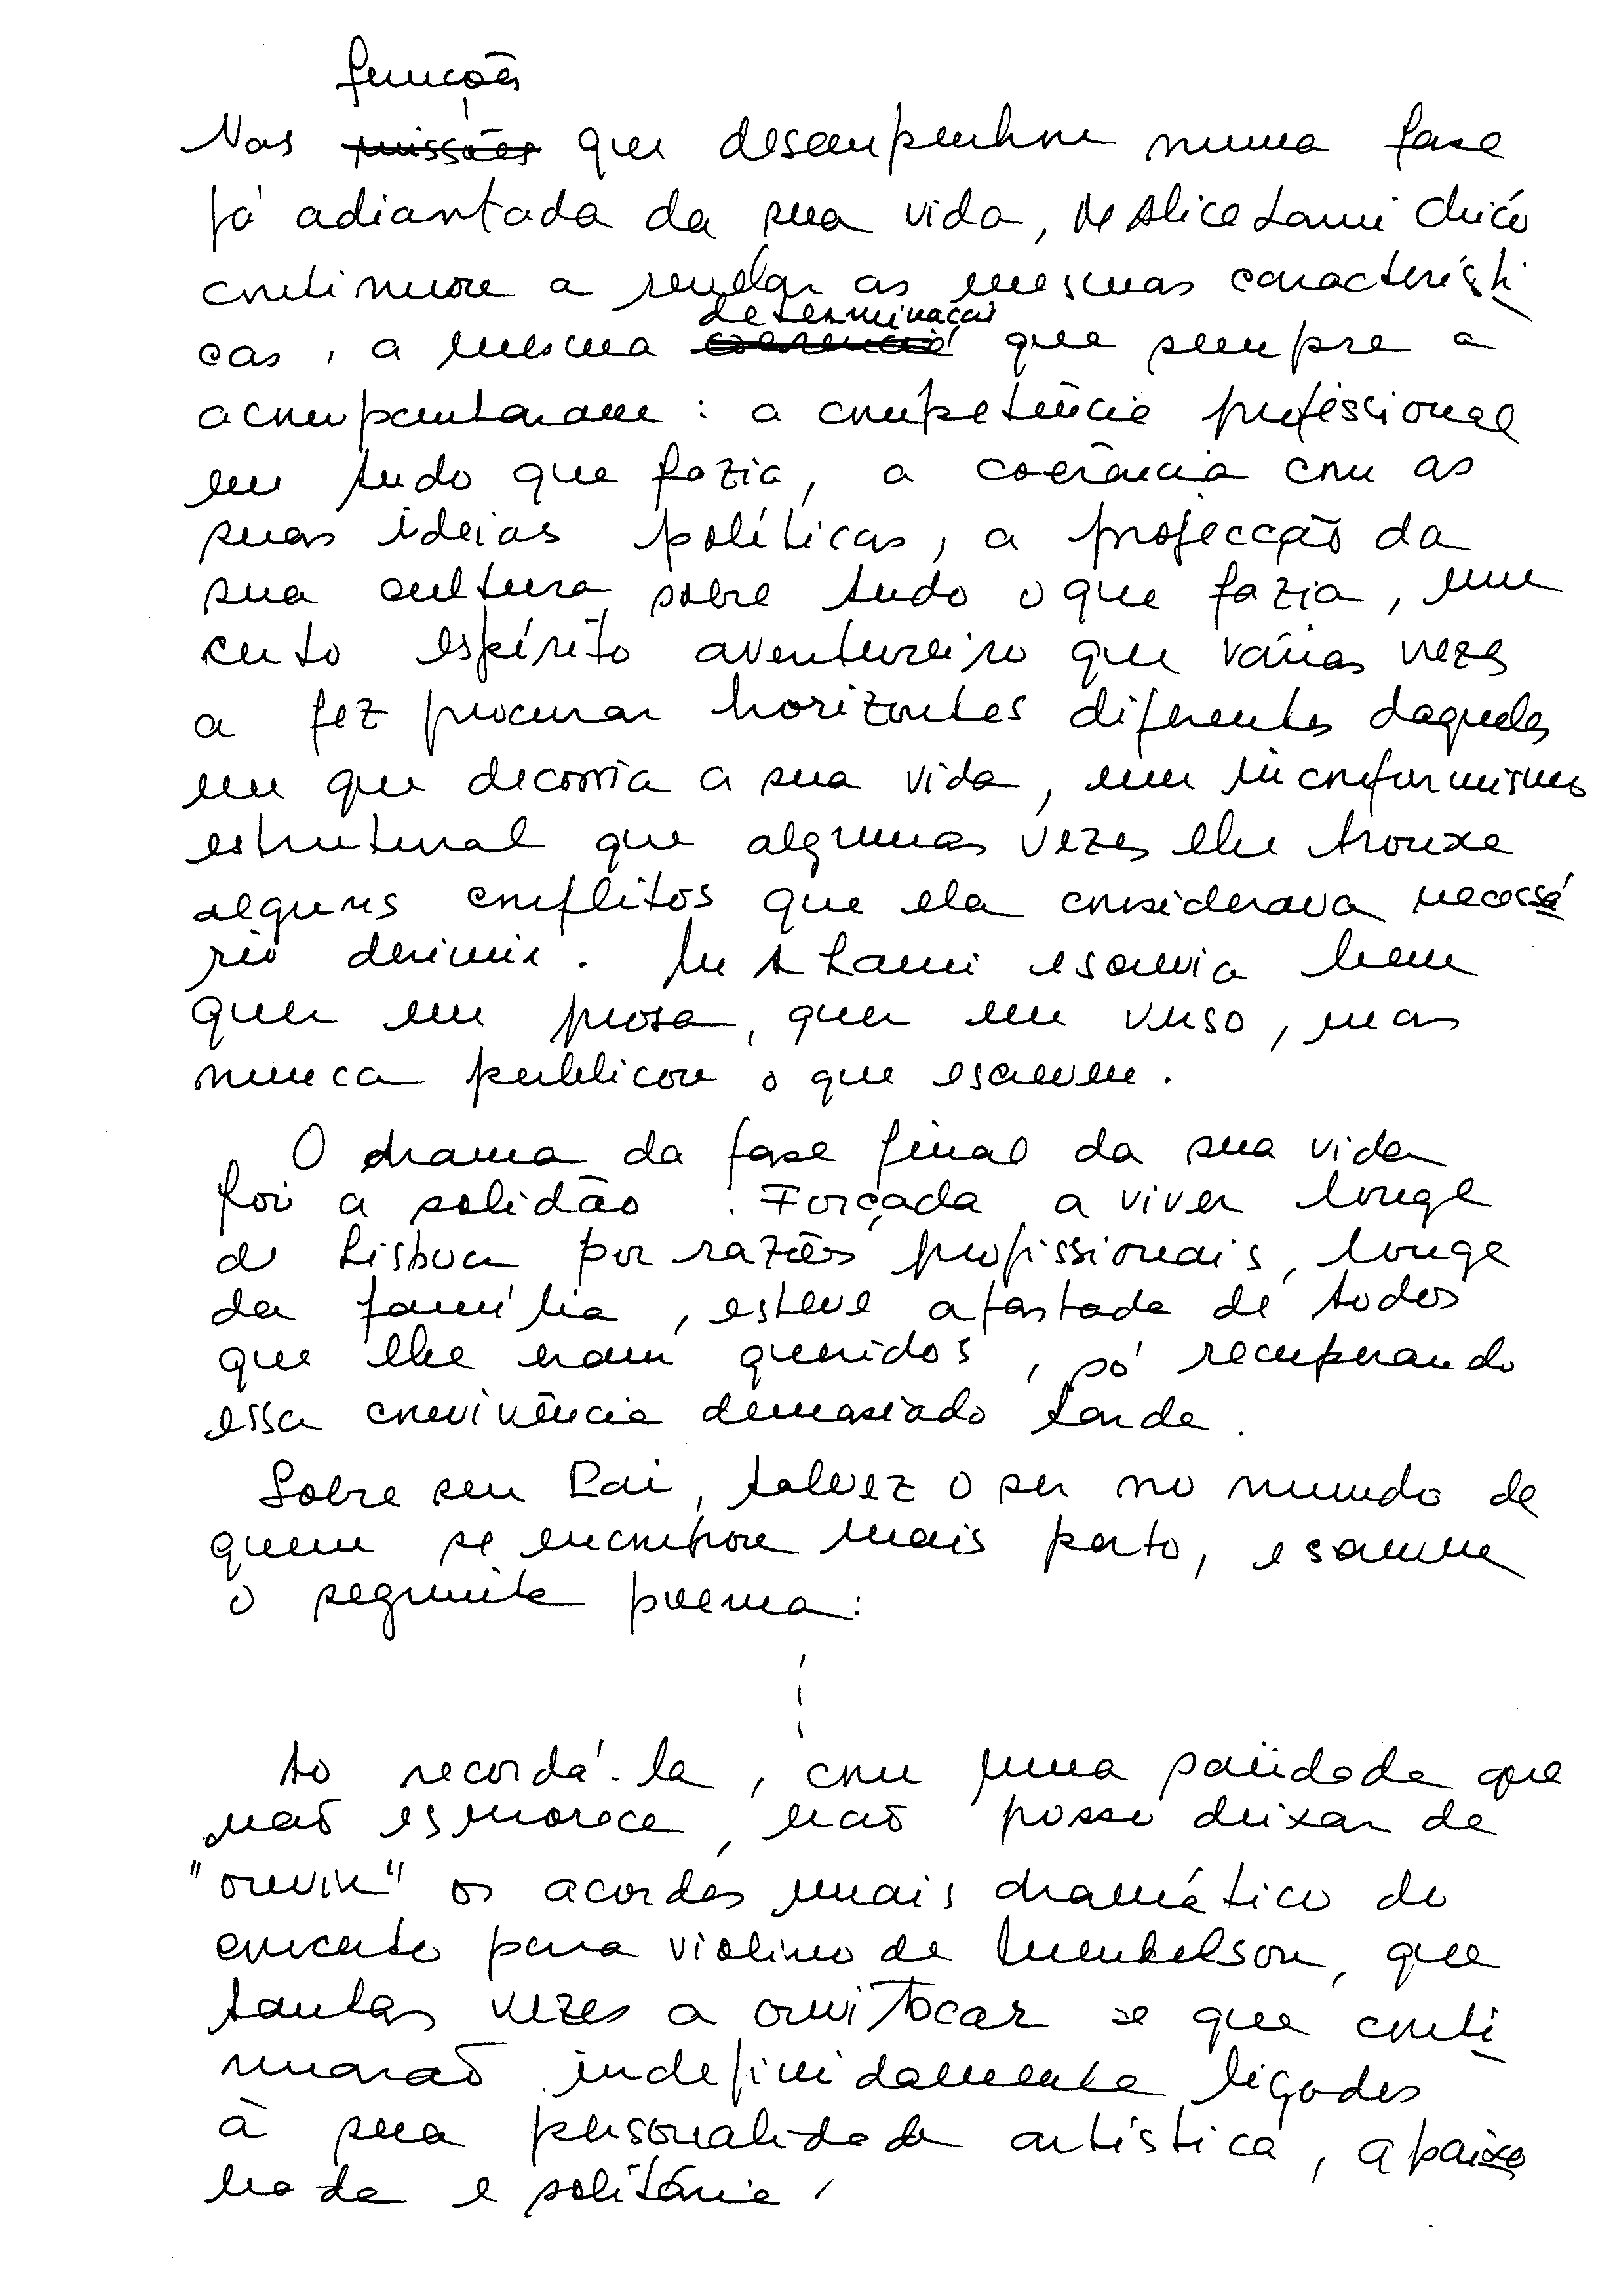 funções
Nas missões que desempenhou numa fase
já adiantada da sua vida, Mª Alice Lami Chicó
continuou a revelar as mesmas característi
determinação
cas, a mesma coerência que sempre a
acompanharam: a competência profissional
em tudo que fazia, a coerência com as
suas ideias políticas, a projecção da
sua cultura sobre tudo o que fazia, um
certo espírito aventureiro que várias vezes
a fez procurar horizontes diferentes daqueles
em que decorria a sua vida, um inconformismo
estrutural que algumas vezes lhe trouxe
alguns conflitos que ela considerava necessá
rio dirimir. Mª A Lami escrevia bem
quer em prosa, quer em verso, mas
nunca publicou o que escreveu.
O drama da fase final da sua vida
foi a solidão. Forçada a viver longe
de Lisboa por razões profissionais, longe
da família, esteve afastada de todos
que lhe eram queridos, só recuperando
essa convivência demasiado tarde.
Sobre seu Pai, talvez o ser no mundo de
quem se encontrou mais perto, escreveu
o seguinte poema:
Ao recordá-la, com uma saüdade que
não esmorece, não posso deixar de
"ouvir" os acordes mais dramático do
concerto para violino de Mendelson, que
tantas vezes a ouvi tocar e que conti
nuarão indefinidamente ligados
à sua personalidade artística, apaixo
nada e solitária.